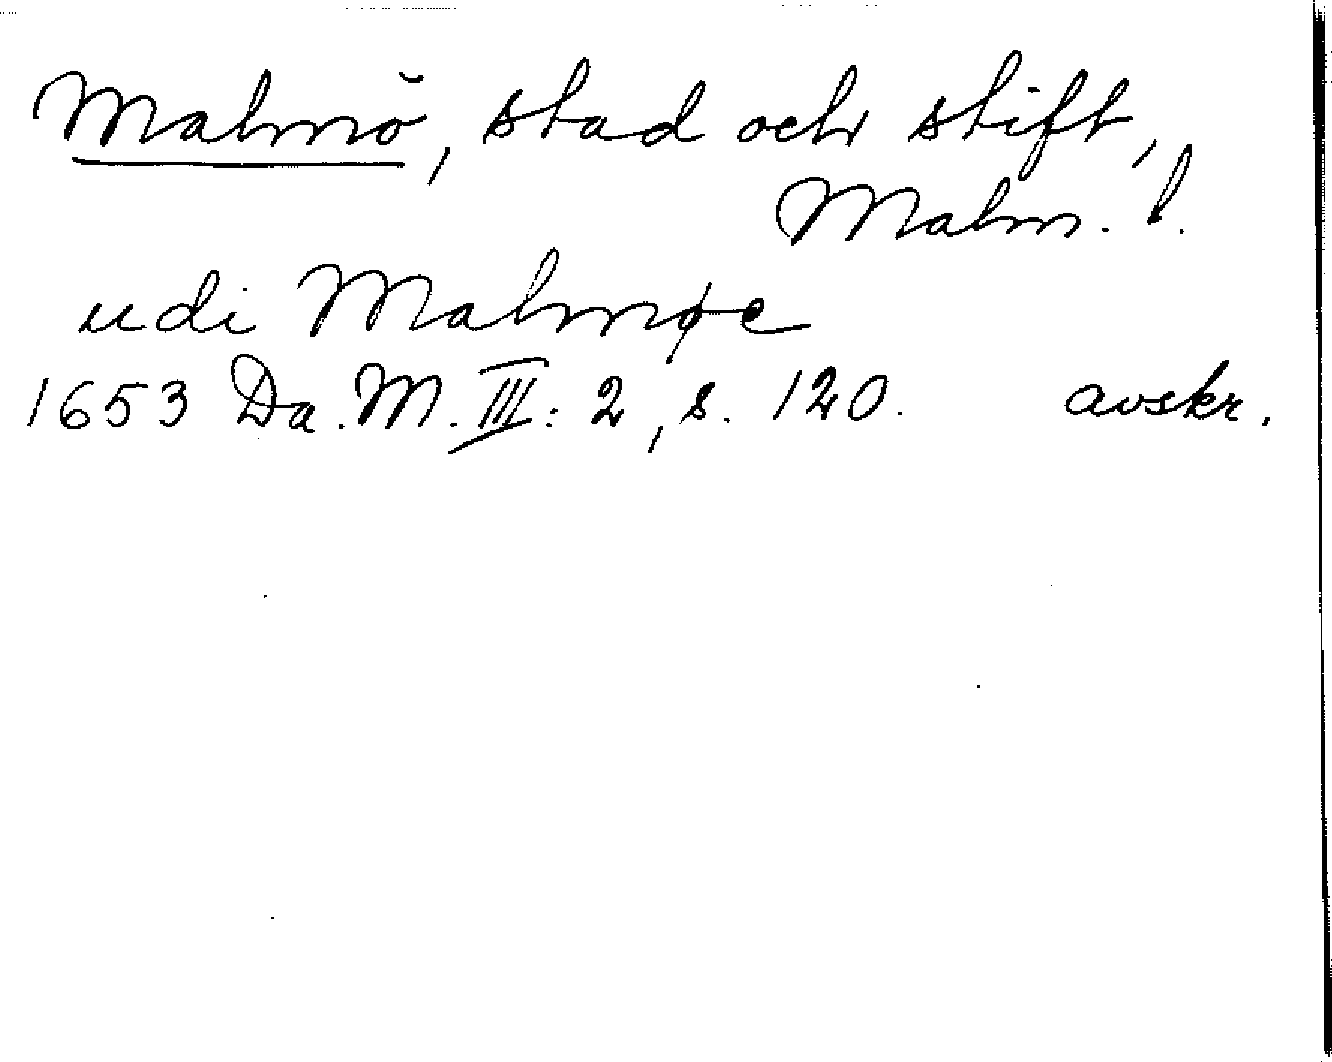 Malmö, stad och stift,
Malm. l.
udi Malmøe
1653 Da. M. III: 2, s. 120. avskr.